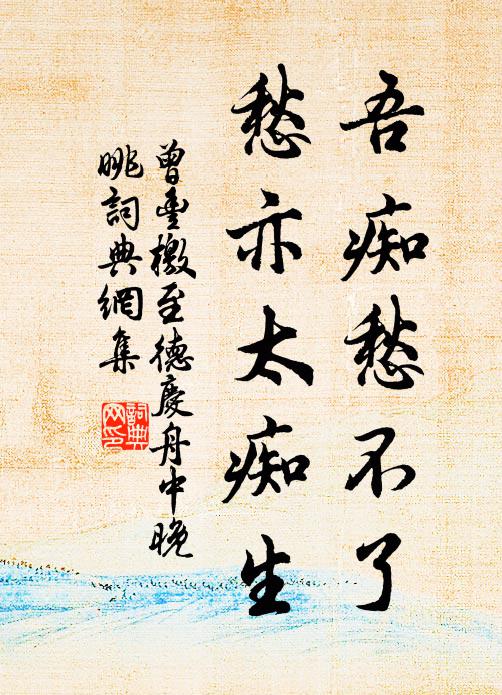 吾痴愁不了
愁亦太痴生
曾丰檄至德慶舟中晚
眺詞典網集
詞典
网印